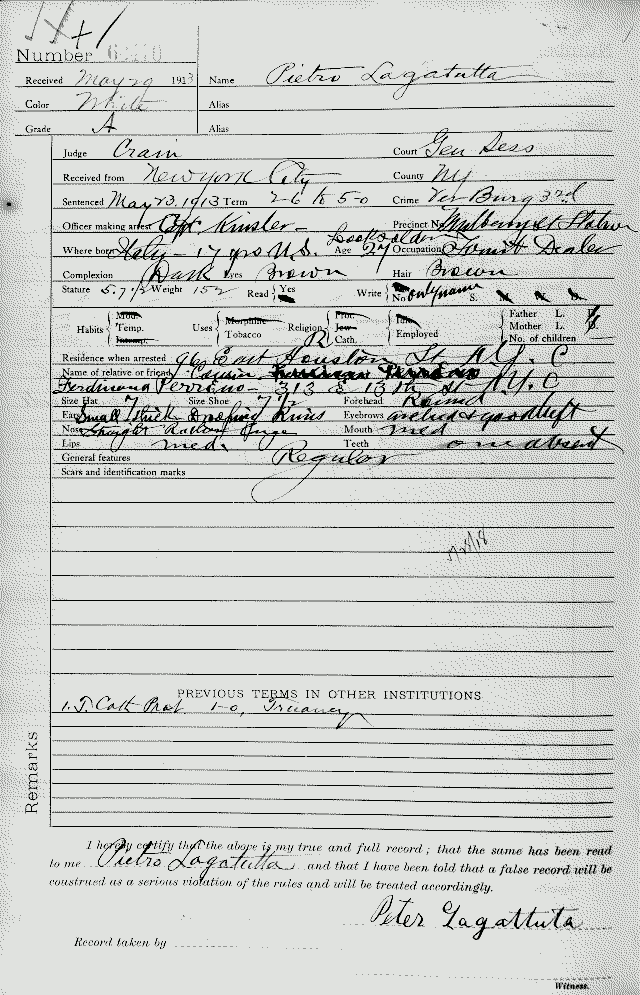 Number
Received May 29 1913 Name Pietro Lagatutta
Color White Alias
Grade A Alias
Judge Crain Court Gen Sess
Received from New York City County NY
Sentenced May 23, 1913 Term 2-6 to 5-0 Crime Burg 3rd
Officer making arrest Kinsler Precinct No Mulberry St Station
Where born Italy - 17 yrs U.S. Age 27 Occupation Dealer
Looks older
Complexion Dark Eyes Brown Hair Brown
Stature 5.7 1/2 Weight 152 Read Yes No Write No only name S. M. W. D.
Habits Mod. Temp. Intemp. Uses Morphine Tobacco Religion Prot. Jew Cath. R Idle Employed Father L. D. Mother L. D. No. of children
Residence when arrested 96 East Houston St N.Y. C
Name of relative or friend Cousin
Ferdinand Perrino - 313 E 13th St N.Y. C
Size Hat 7 Size Shoe 7 1/2 Forehead Round
Ears Small thick Eyebrows arched & good
Nose Straight Mouth med
Lips med. Teeth one absent
General features Regular
Scars and identification marks
PREVIOUS TERMS IN OTHER INSTITUTIONS
1. Cath Prot 1-0, Truancy
Remarks
I hereby certify that the above is my true and full record; that the same has been read
to me Pietro Lagatutta and that I have been told that a false record will be
construed as a serious violation of the rules and will be treated accordingly.
Peter Lagattuta
Record taken by
Witness.